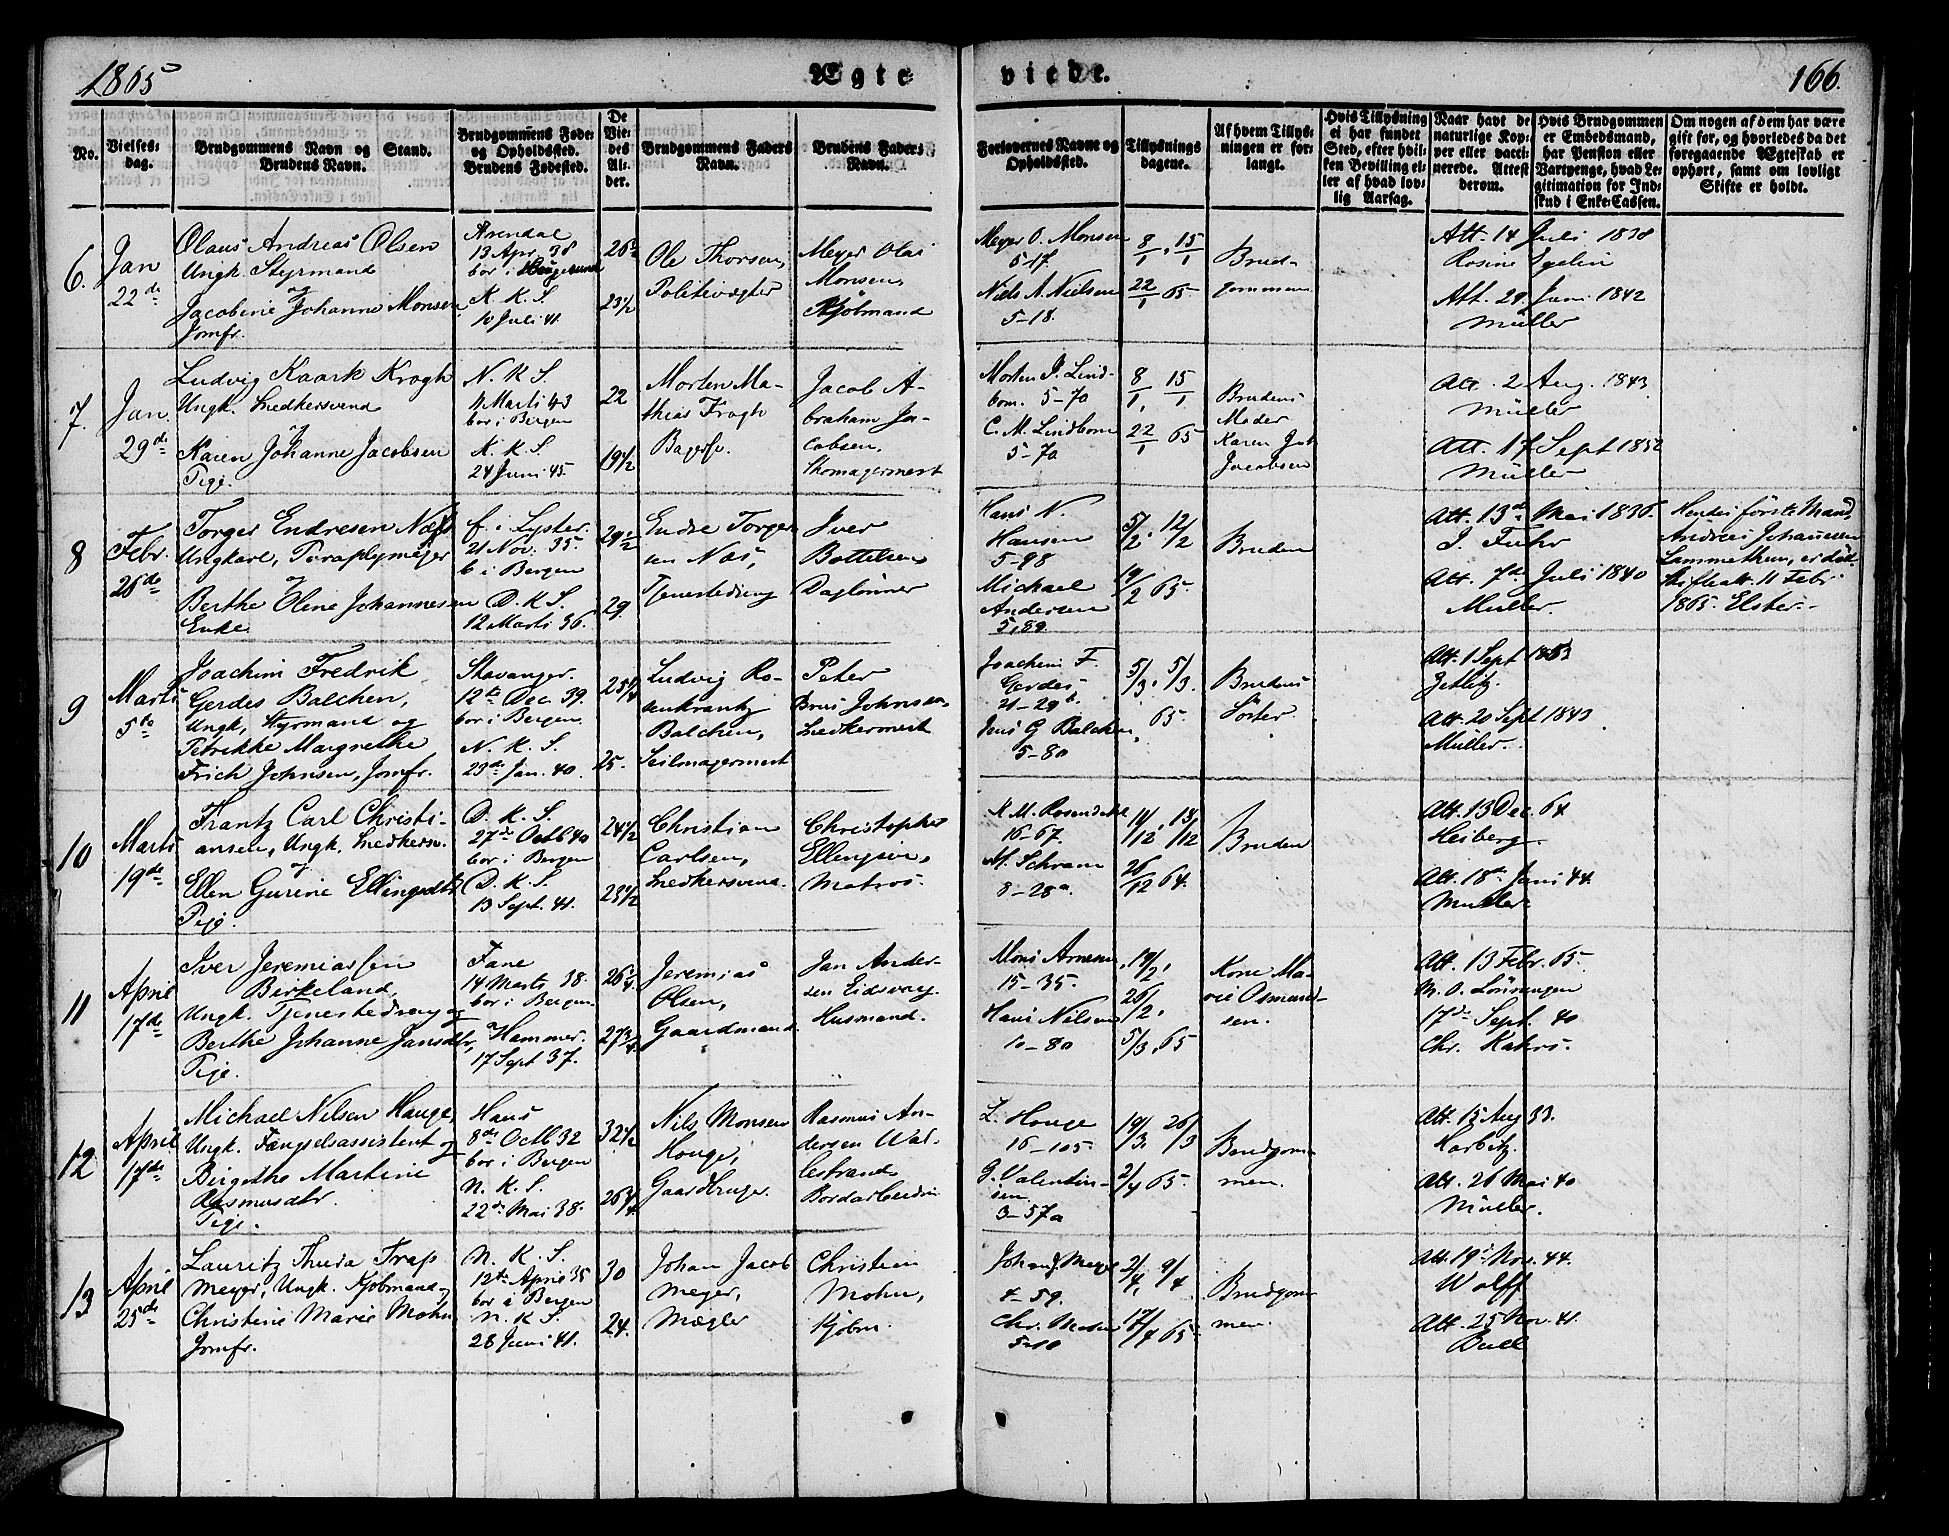 1865
Ægte-
viede.
166.
No.
Vielses-
dag.
Brudgommens Navn og Stand.
Brudens Navn.
Brudgommens Føde-
og Opholdssted.
Brudens Fødested.
De
Vie-
des
Al-
der.
Brudgommens Faders
Navn.
Brudens Faders
Navn.
Forlovernes Navne og
Opholdssted.
Tillysnings
dagene.
Af hvem Tillys-
ningen er for-
langt.
Hvis Tillysning
ei har fundet
Sted, efter hvil-
ken Bevilling el-
ler af hvad lov-
lig Aarsag.
Naar havt de
naturlige Kop-
per eller vacci-
nerede. Attest
derom.
Hvis Brudgommen
er Embedsmand,
har Pension eller
Vartpenge, hvad Le-
gitimation for Ind-
skud i Enke-Cassen.
Om nogen af dem har være
gift før, og hvorledes da det
foregaaende Ægteskab er
ophørt, samt om lovligt
Skifte er holdt.
6.
Jan
22de
Olaus Andreas Olsen
Ungk. Styrmand
og
Jacobine Johanne Monsen
Jomfr.
Arendal
13 Apr. 38
bor i Haugesund
N. K. S.
10 Juli 41.
26½
23½
Ole Thorsen,
Politivægter
Meyer Olai
Monsen,
Kjøbmand
Meyer O. Monsen
5-17.
Niels A. Nielsen
5-18.
8/1, 15/1
22/1 65.
Brud-
gommen
Att. 14 Juli 1838
Rosine
Att. 29 Juni 1842
Müller
7.
Jan.
29de
Ludvig Kaark Krogh
Ungk. Snedkersvend
og
Karen Johanne Jacobsen
Pige.
N. K. S.
11 Marti 43
bor i Bergen
N. K. S.
24 Juni 45.
22
19½
Morten Ma-
thias Krogh
Bagersv.
Jacob A-
braham Ja-
cobsen,
Skomagermest
Morten J. Lind-
bom. 5-70
C. M. Lindbom
5-70
8/1, 15/1
22/1 65
Brudens
Moder
Karen
Jacobsen
Att. 2 Aug. 1843
Müller
Att. 17 Sept 1852
Müller
8
Febr.
26de
Torger Endresen Næs
Ungkarl, Paraplymager
og
Berthe Oline Johannesen
Enke.
f. i Lyster.
21 Nov. 35.
b. i Bergen
D. K. S.
12 Marti 36.
29½
29.
Endre Torger-
sen Næs,
Tjenestedreng
Iver
Bottelsen
Daglønner
Hans N.
Hansen
5-98
Michael
Andersen
5,89
5/2. 12/2
19/2 65.
Bruden
Att. 13de Mai 1836.
J. Fuhr
Att. 7de Juli 1840
Müller.
Hendes første Mand,
Andreas Johannesen
Lammethun, er død.
Skifteatt. 11 Febr.
1865. Elster.-
9
Marti
5te
Joachim Fredrik
Gerdes Balchen,
Ungk, Styrmand og
Petrikke Margrethe
Frich Johnsen, Jomfr.
Stavanger.
12te Dec. 39.
bor i Bergen.
N. K. S.
23de Jan. 40.
25¼
25.
Ludvig Ro-
senkrantz
Balchen,
Seilmagermest
Peter
Brus Johnsen
Snedkermest
Joachim F.
Gerdes
21-29b.
Jens G Balchen,
5-80
5/3. 5/3.
65.
Brudens
Søster.
Att. 1 Sept 1853
Zetlitz.
Att. 20 Sept 1843
Müller.
10
Marti
19de
Frantz Carl Christi-
ansen, Ungk. Snedkersv.
og
Ellen Gurine Ellingsdtr
Pige.
D. K. S.
27de Octb 40
bor i Bergen
D. K. S.
13 Sept. 41.
24½
23½
Christian
Carlsen,
Snedkersvend.
Christopher
Ellingsen,
Matros.
K. M. Rosendahl
16-67.
M. Schram
8-28a.
11/12, 18/12
26/12 64.
Bruden
Att. 13 Dec. 64
Heiberg.
Att. 18de Juni 44.
Müller.
11
April
17de
Iver Jeremiassen
Birkeland,
Ungk. Tjenestedreng og
Berthe Johanne Jansdtr,
Pige.
Fane
14 Marts 38.
bor i Bergen.
Hammer.
17 Sept 37.
26¼
27¾
Jeremias
Olsen,
Gaardmand
Jan Ander-
sen Eidsvaag
Husmand.
Mons Arnesen,
15-35.
Hans Nilsen
10-80
19/2,
26/2,
5/3.65
Kone Ma-
rie Osmund-
sen.
Att. 13 Febr. 65.
M. O. Lønningen
17de Sept. 40
Chr. Kahrs.
12
April
17de
Michael Nilsen Hauge,
Ungk. Fængselsassistent og
Birgithe Martine
Rasmusdtr.
Pige.
Haus
8de Octb 32
bor i Bergen
N. K. S.
22de Mai 38.
32½
26¾
Nils Monsen
Houge,
Gaardbruger.
Rasmus An-
dersen Wal-
lestrand
Bordarbeider
L. Houge
16-105.
G. Valentin-
sen
3-57a
19/3. 26/3
2/4 65.
Brudgom-
men.
Att. 15 Aug 33.
Harbitz.
Att. 26 Mai 40
Müller.
13
April
25de
Lauritz Thura Trap
Meyer, Ungk. Kjøbmand og
Christine Marie Mohn
Jomfr.
N. K. S.
12te April 35
bor i Bergen
N. K. S.
28 Juni 41.
30
24.
Johan Jacob
Meyer,
Mægler
Christian
Mohn,
Kjøbm.
Johan J Meyer
4-59.
Chr. Mohn
5-10
2/4, 9/4
17/4 65.
Brudgom-
men.
Att. 19de Nov. 44.
Wolff
Att. 25 Nov. 41.
Bull